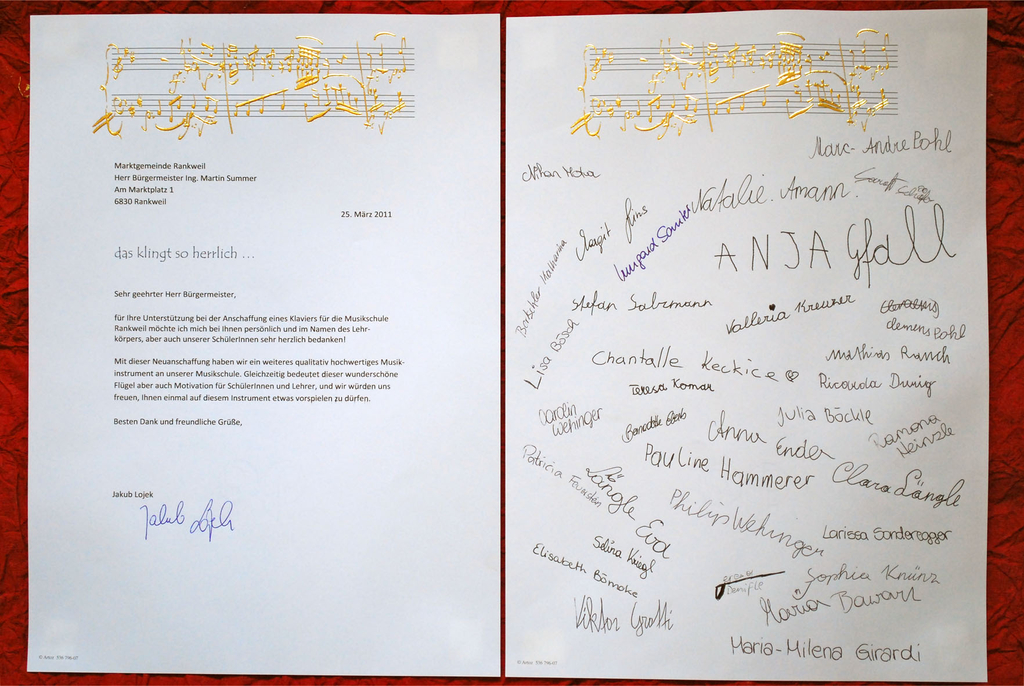 Marktgemeinde Rankweil
Herr Bürgermeister Ing. Martin Summer
Am Marktplatz 1
6830 Rankweil
25. März 2011
das klingt so herrlich ...
Sehr geehrter Herr Bürgermeister,
für Ihre Unterstützung bei der Anschaffung eines Klaviers für die Musikschule
Rankweil möchte ich mich bei Ihnen persönlich und im Namen des Lehr-
körpers, aber auch unserer SchülerInnen sehr herzlich bedanken!
Mit dieser Neuanschaffung haben wir ein weiteres qualitativ hochwertiges Musik-
instrument an unserer Musikschule. Gleichzeitig bedeutet dieser wunderschöne
Flügel aber auch Motivation für SchülerInnen und Lehrer, und wir würden uns
freuen, Ihnen einmal auf diesem Instrument etwas vorspielen zu dürfen.
Besten Dank und freundliche Grüße,
Jakub Lojek
Jakub Lojek
Marc-Andre Pohl
Natalie. Amann.
Margit
Irmgard
ANJA Gfall
Katharina
Stefan Salzmann
Valleria Kreuzer
Clemens Pohl
Lisa Bösch
Chantalle Keckice
Mathias Rauch
Teresa Komar
Riccarda Dünig
Carolin
Wehinger
Julia Böckle
Anna Ender
Ramona
Heinzle
Pauline Hammerer
Clara Längle
Patricia
Längle Eva
Philip Wehinger
Larissa Sonderegger
Selina Kriegl
Elisabeth
Denifle
Sophia Knünz
Maria Bawart
Viktor
Maria-Milena Girardi